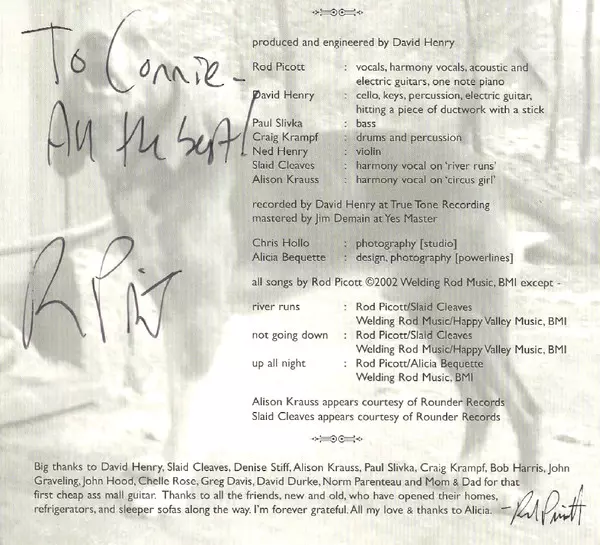 To Connie -
All the best!
R Picott
produced and engineered by David Henry
Rod Picott : vocals, harmony vocals, acoustic and
electric guitars, one note piano
David Henry : cello, keys, percussion, electric guitar,
hitting a piece of ductwork with a stick
Paul Slivka : bass
Craig Krampf : drums and percussion
Ned Henry : violin
Slaid Cleaves : harmony vocal on 'river runs'
Alison Krauss : harmony vocal on 'circus girl'
recorded by David Henry at True Tone Recording
mastered by Jim Demain at Yes Master
Chris Hollo : photography [studio]
Alicia Bequette : design, photography [powerlines]
all songs by Rod Picott ©2002 Welding Rod Music, BMI except -
river runs : Rod Picott/Slaid Cleaves
Welding Rod Music/Happy Valley Music, BMI
not going down : Rod Picott/Slaid Cleaves
Welding Rod Music/Happy Valley Music, BMI
up all night : Rod Picott/Alicia Bequette
Welding Rod Music, BMI
Alison Krauss appears courtesy of Rounder Records
Slaid Cleaves appears courtesy of Rounder Records
Big thanks to David Henry, Slaid Cleaves, Denise Stiff, Alison Krauss, Paul Slivka, Craig Krampf, Bob Harris, John
Graveling, John Hood, Chelle Rose, Greg Davis, David Durke, Norm Parenteau and Mom & Dad for that
first cheap ass mall guitar. Thanks to all the friends, new and old, who have opened their homes,
refrigerators, and sleeper sofas along the way. I'm forever grateful. All my love & thanks to Alicia. - Rod Picott